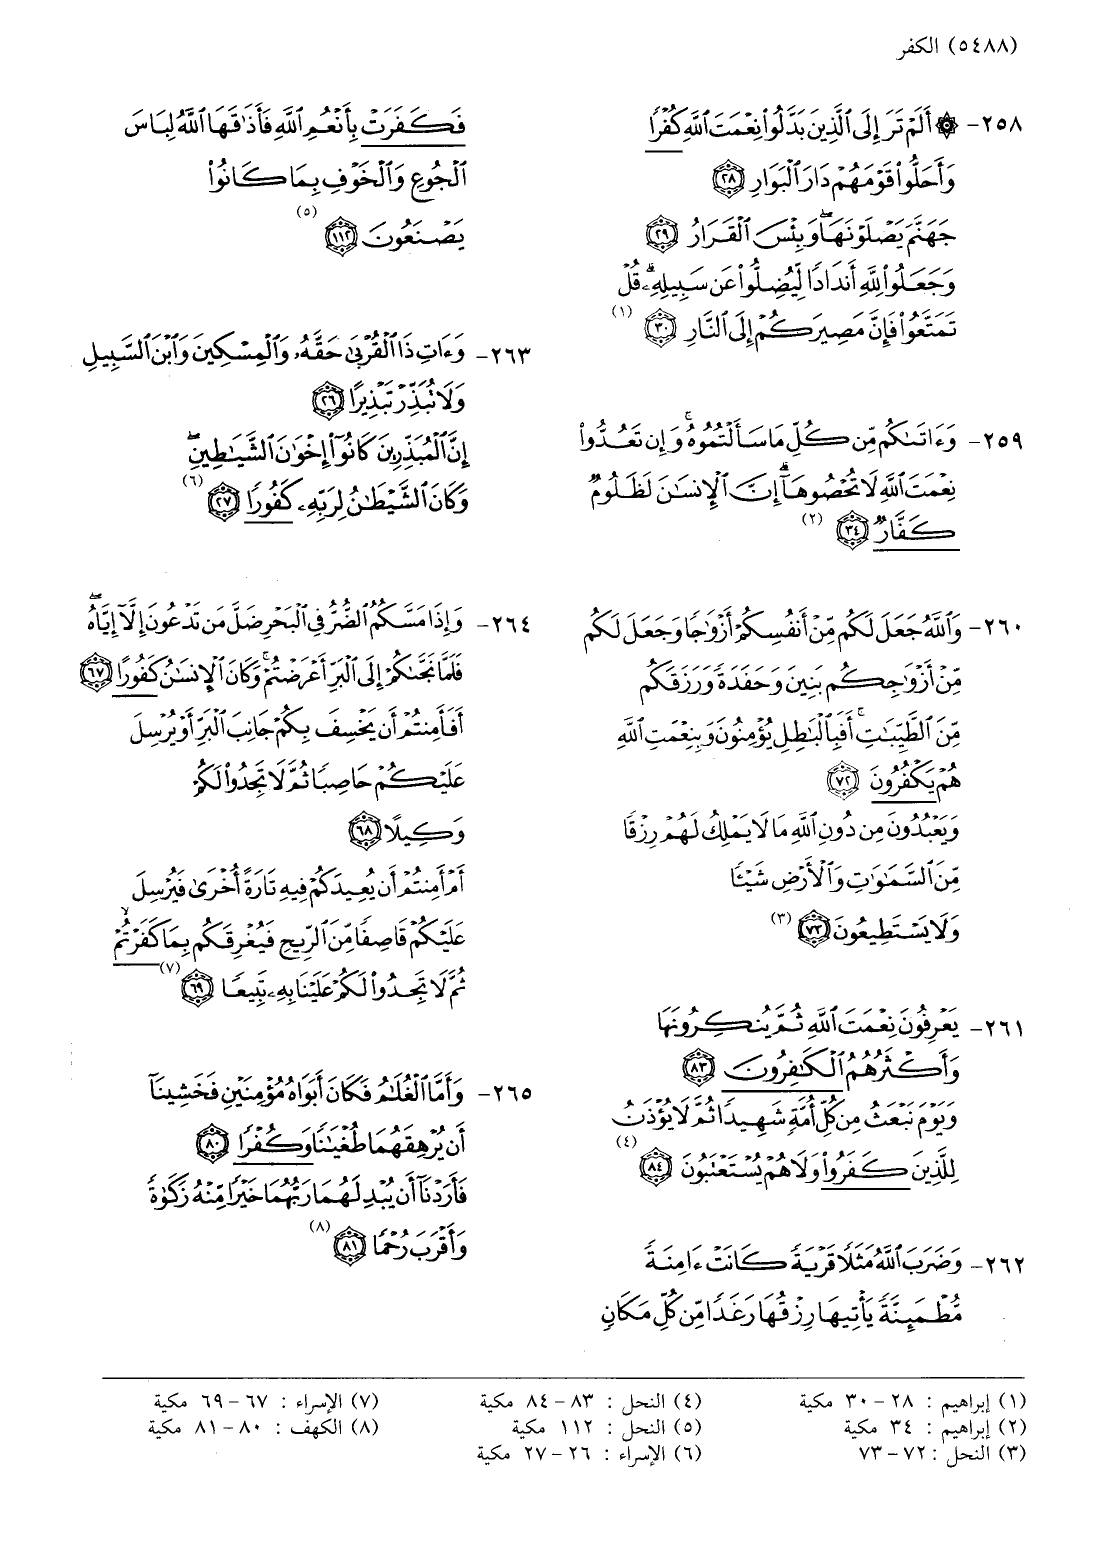 (٥٤٨٨) الكفر
٢٥٨- ۞ أَلَمْ تَرَ إِلَى ٱلَّذِينَ بَدَّلُوا۟ نِعْمَتَ ٱللَّهِ كُفْرًا
وَأَحَلُّوا۟ قَوْمَهُمْ دَارَ ٱلْبَوَارِ ﴿٢٨﴾
جَهَنَّمَ يَصْلَوْنَهَا ۖ وَبِئْسَ ٱلْقَرَارُ ﴿٢٩﴾
وَجَعَلُوا۟ لِلَّهِ أَندَادًا لِّيُضِلُّوا۟ عَن سَبِيلِهِۦ ۗ قُلْ
تَمَتَّعُوا۟ فَإِنَّ مَصِيرَكُمْ إِلَى ٱلنَّارِ ﴿٣٠﴾ (١)
٢٥٩- وَءَاتَىٰكُم مِّن كُلِّ مَا سَأَلْتُمُوهُ ۚ وَإِن تَعُدُّوا۟
نِعْمَتَ ٱللَّهِ لَا تُحْصُوهَآ ۗ إِنَّ ٱلْإِنسَٰنَ لَظَلُومٌ
كَفَّارٌ ﴿٣٤﴾ (٢)
٢٦٠- وَٱللَّهُ جَعَلَ لَكُم مِّنْ أَنفُسِكُمْ أَزْوَٰجًا وَجَعَلَ لَكُم
مِّنْ أَزْوَٰجِكُم بَنِينَ وَحَفَدَةً وَرَزَقَكُم
مِّنَ ٱلطَّيِّبَٰتِ ۚ أَفَبِٱلْبَٰطِلِ يُؤْمِنُونَ وَبِنِعْمَتِ ٱللَّهِ
هُمْ يَكْفُرُونَ ﴿٧٢﴾
وَيَعْبُدُونَ مِن دُونِ ٱللَّهِ مَا لَا يَمْلِكُ لَهُمْ رِزْقًا
مِّنَ ٱلسَّمَٰوَٰتِ وَٱلْأَرْضِ شَيْـًٔا
وَلَا يَسْتَطِيعُونَ ﴿٧٣﴾ (٣)
٢٦١- يَعْرِفُونَ نِعْمَتَ ٱللَّهِ ثُمَّ يُنكِرُونَهَا
وَأَكْثَرُهُمُ ٱلْكَٰفِرُونَ ﴿٨٣﴾
وَيَوْمَ نَبْعَثُ مِن كُلِّ أُمَّةٍ شَهِيدًا ثُمَّ لَا يُؤْذَنُ
لِلَّذِينَ كَفَرُوا۟ وَلَا هُمْ يُسْتَعْتَبُونَ ﴿٨٤﴾ (٤)
٢٦٢- وَضَرَبَ ٱللَّهُ مَثَلًا قَرْيَةً كَانَتْ ءَامِنَةً
مُّطْمَئِنَّةً يَأْتِيهَا رِزْقُهَا رَغَدًا مِّن كُلِّ مَكَانٍ
فَكَفَرَتْ بِأَنْعُمِ ٱللَّهِ فَأَذَٰقَهَا ٱللَّهُ لِبَاسَ
ٱلْجُوعِ وَٱلْخَوْفِ بِمَا كَانُوا۟
يَصْنَعُونَ ﴿١١٢﴾ (٥)
٢٦٣- وَءَاتِ ذَا ٱلْقُرْبَىٰ حَقَّهُۥ وَٱلْمِسْكِينَ وَٱبْنَ ٱلسَّبِيلِ
وَلَا تُبَذِّرْ تَبْذِيرًا ﴿٢٦﴾
إِنَّ ٱلْمُبَذِّرِينَ كَانُوٓا۟ إِخْوَٰنَ ٱلشَّيَٰطِينِ ۖ
وَكَانَ ٱلشَّيْطَٰنُ لِرَبِّهِۦ كَفُورًا ﴿٢٧﴾ (٦)
٢٦٤- وَإِذَا مَسَّكُمُ ٱلضُّرُّ فِى ٱلْبَحْرِ ضَلَّ مَن تَدْعُونَ إِلَّآ إِيَّاهُ ۖ
فَلَمَّا نَجَّىٰكُمْ إِلَى ٱلْبَرِّ أَعْرَضْتُمْ ۚ وَكَانَ ٱلْإِنسَٰنُ كَفُورًا ﴿٦٧﴾
أَفَأَمِنتُمْ أَن يَخْسِفَ بِكُمْ جَانِبَ ٱلْبَرِّ أَوْ يُرْسِلَ
عَلَيْكُمْ حَاصِبًا ثُمَّ لَا تَجِدُوا۟ لَكُمْ
وَكِيلًا ﴿٦٨﴾
أَمْ أَمِنتُمْ أَن يُعِيدَكُمْ فِيهِ تَارَةً أُخْرَىٰ فَيُرْسِلَ
عَلَيْكُمْ قَاصِفًا مِّنَ ٱلرِّيحِ فَيُغْرِقَكُم بِمَا كَفَرْتُمْ ۙ
ثُمَّ لَا تَجِدُوا۟ لَكُمْ عَلَيْنَا بِهِۦ تَبِيعًا ﴿٦٩﴾ (٧)
٢٦٥- وَأَمَّا ٱلْغُلَٰمُ فَكَانَ أَبَوَاهُ مُؤْمِنَيْنِ فَخَشِينَآ
أَن يُرْهِقَهُمَا طُغْيَٰنًا وَكُفْرًا ﴿٨٠﴾
فَأَرَدْنَآ أَن يُبْدِلَهُمَا رَبُّهُمَا خَيْرًا مِّنْهُ زَكَوٰةً
وَأَقْرَبَ رُحْمًا ﴿٨١﴾ (٨)
(١) إبراهيم : ٢٨ - ٣٠ مكية
(٢) إبراهيم : ٣٤ مكية
(٣) النحل : ٧٢ - ٧٣
(٤) النحل : ٨٣ - ٨٤ مكية
(٥) النحل : ١١٢ مكية
(٦) الإسراء : ٢٦ - ٢٧ مكية
(٧) الإسراء : ٦٧ - ٦٩ مكية
(٨) الكهف : ٨٠ - ٨١ مكية